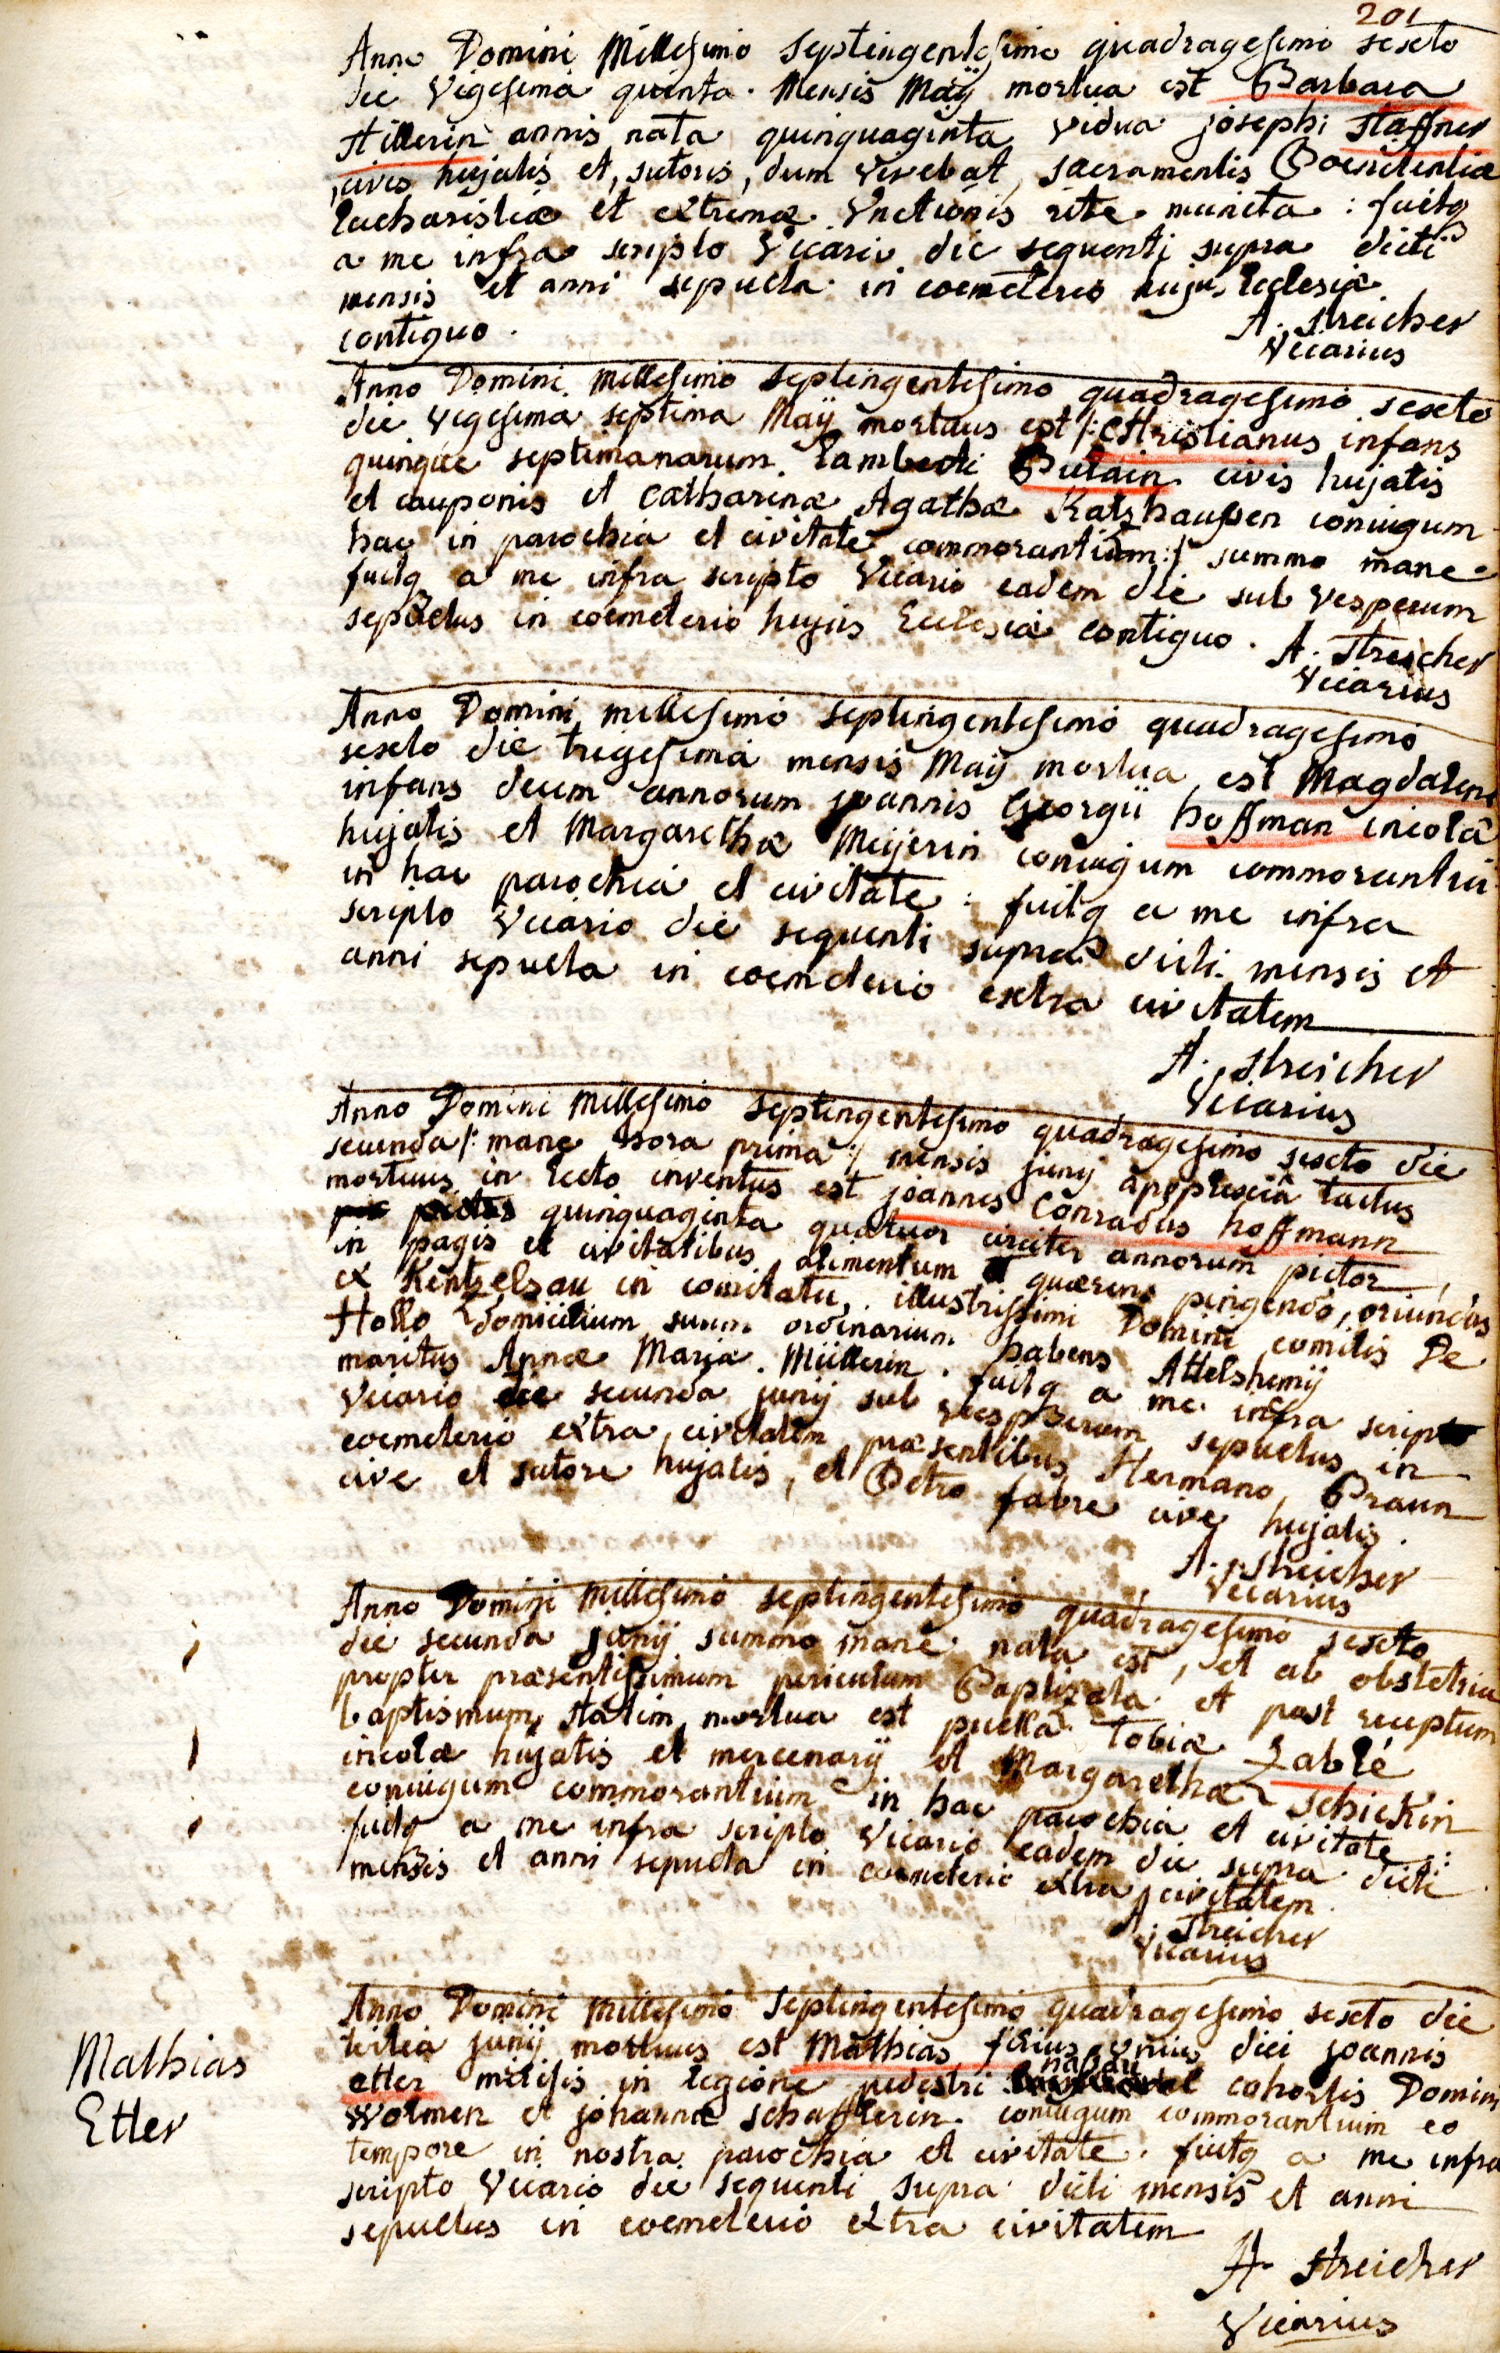 201
Anno Domini Millesimo Septingentesimo quadragesimo sexto
die Vigesima quinta Mensis Maÿ mortua est Barbara
Hillerin annis nata quinquaginta vidua josephi Staffner
civis hujatis et, sutoris, dum vivebat, sacramentis Poenitentiæ
Eucharistiæ et extremæ Vnctionis rite munita : fuitq
a me infra scripto Vicario die sequenti supra dicti
mensis et anni sepulta in coemeterio hujus Ecclesiæ
contiguo.
A. Streicher
Vicarius
Anno Domini Millesimo Septingentesimo quadragesimo sexto
die vigesima septima Maÿ mortuus est /: Christianus infans
quinque septimanarum Lamberti Putain civis hujatis
et cauponis et Catharinæ Agathæ Katzhausen coniugum
hac in parochia et civitate commorantium :/ summo mane
fuitq a me infra scripto Vicario eadem die sub vesperum
sepultus in coemeterio hujus Ecclesiæ contiguo.
A. Streicher
Vicarius
Anno Domini millesimo septingentesimo quadragesimo
sexto die trigesima mensis Maÿ mortua est Magdalena
infans decem annorum joannis Georgii hoffman incolæ
hujatis et Margarethæ Meÿerin coniugum commorantiu
in hac parochia et civitate : fuitq a me infra
scripto Vicario die sequenti supra dicti mensis et
anni sepulta in coemeterio extra civitatem
A. Streicher
Vicarius
Anno Domini Millesimo Septingentesimo quadragesimo sexto die
secunda /: mane hora prima :/ mensis junÿ apoplexiâ tactus
mortuus in lecto inventus est joannes Conradus hoffmann
quinquaginta quatuor circiter annorum pictor,
in pagis et civitatibus alimentum quærens pingendo, oriundus
ex Kentzelsau in comitatu illustrissimi Domini comitis De
Hollo domicilium suum ordinarium habens Attelshemÿ
maritus Annæ Maria Müllerin. fuitq a me infra scripto
Vicario die secunda junÿ sub vesperum sepultus in
coemeterio extra civitatem præsentibus Hermano Praun
cive et sutore hujatis, et Petro fabre cive hujatis.
A. Streicher
Vicarius
Anno Domini Millesimo septingentesimo quadragesimo sexto
die secunda junÿ summo mane nata est, et ab obstetrice
propter præsentissimum periculum Baptizata et post receptum
baptismum statim mortua est puella Tobiæ Zablé
incolæ hujatis et mercenarÿ et Margarethæ Schickin
coniugum commorantium in hac parochia et civitate :
fuitq a me infra scripto Vicario eadem die supra dicti
mensis et anni sepulta in coemeterio extra civitatem.
A. Streicher
Vicarius
Anno Domini Millesimo Septingentesimo quadragesimo sexto die
tertia junÿ mortuus est Mathias filius unius diei joannis
nassau
etter militis in legione pedestri cohortis Domini
Wolmen et johannæ Schafflerin coniugum commorantium eo
tempore in nostra parochia et civitate. fuitq a me infra
scripto Vicario die sequenti supra dicti mensis et anni
sepultus in coemeterio extra civitatem
A. Streicher
Vicarius
Mathias
Etter